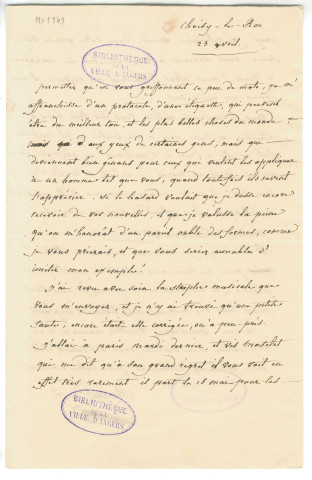 MS 1949
Choisy-le-Roi
23 avril.
BIBLIOTHÈQUE
DE LA
VILLE D'ANGERS
permettez qu'en vous griffonnant ce peu de mots, je m'
affranchisse d'un protocole, d'une étiquette, qui peuvent
être du meilleur ton, et les plus belles choses du monde
aux yeux de certaines gens, mais qui
deviennent bien gênans, pour ceux qui veulent les appliquer
à un homme tel que vous, quand toutefois ils savent
l'apprécier. si le hasard voulait que je dusse encore
recevoir de vos nouvelles, et que je valusse la peine
qu'on m'honorât d'un pareil oubli des formes, comme
je vous prierais, et que vous seriez aimable d'
imiter mon exemple!
J'ai revu avec soin la strophe musicale que
vous m'envoyez, et je n'y ai trouvé qu'une petite
faute, encore était elle corrigée, ou à peu près.
j'allai à paris mardi dernier, et vis
qui me dit qu'à son grand regret il vous voit en
effet très rarement. il part le 15 mai pour les
BIBLIOTHÈQUE
DE LA
VILLE D'ANGERS